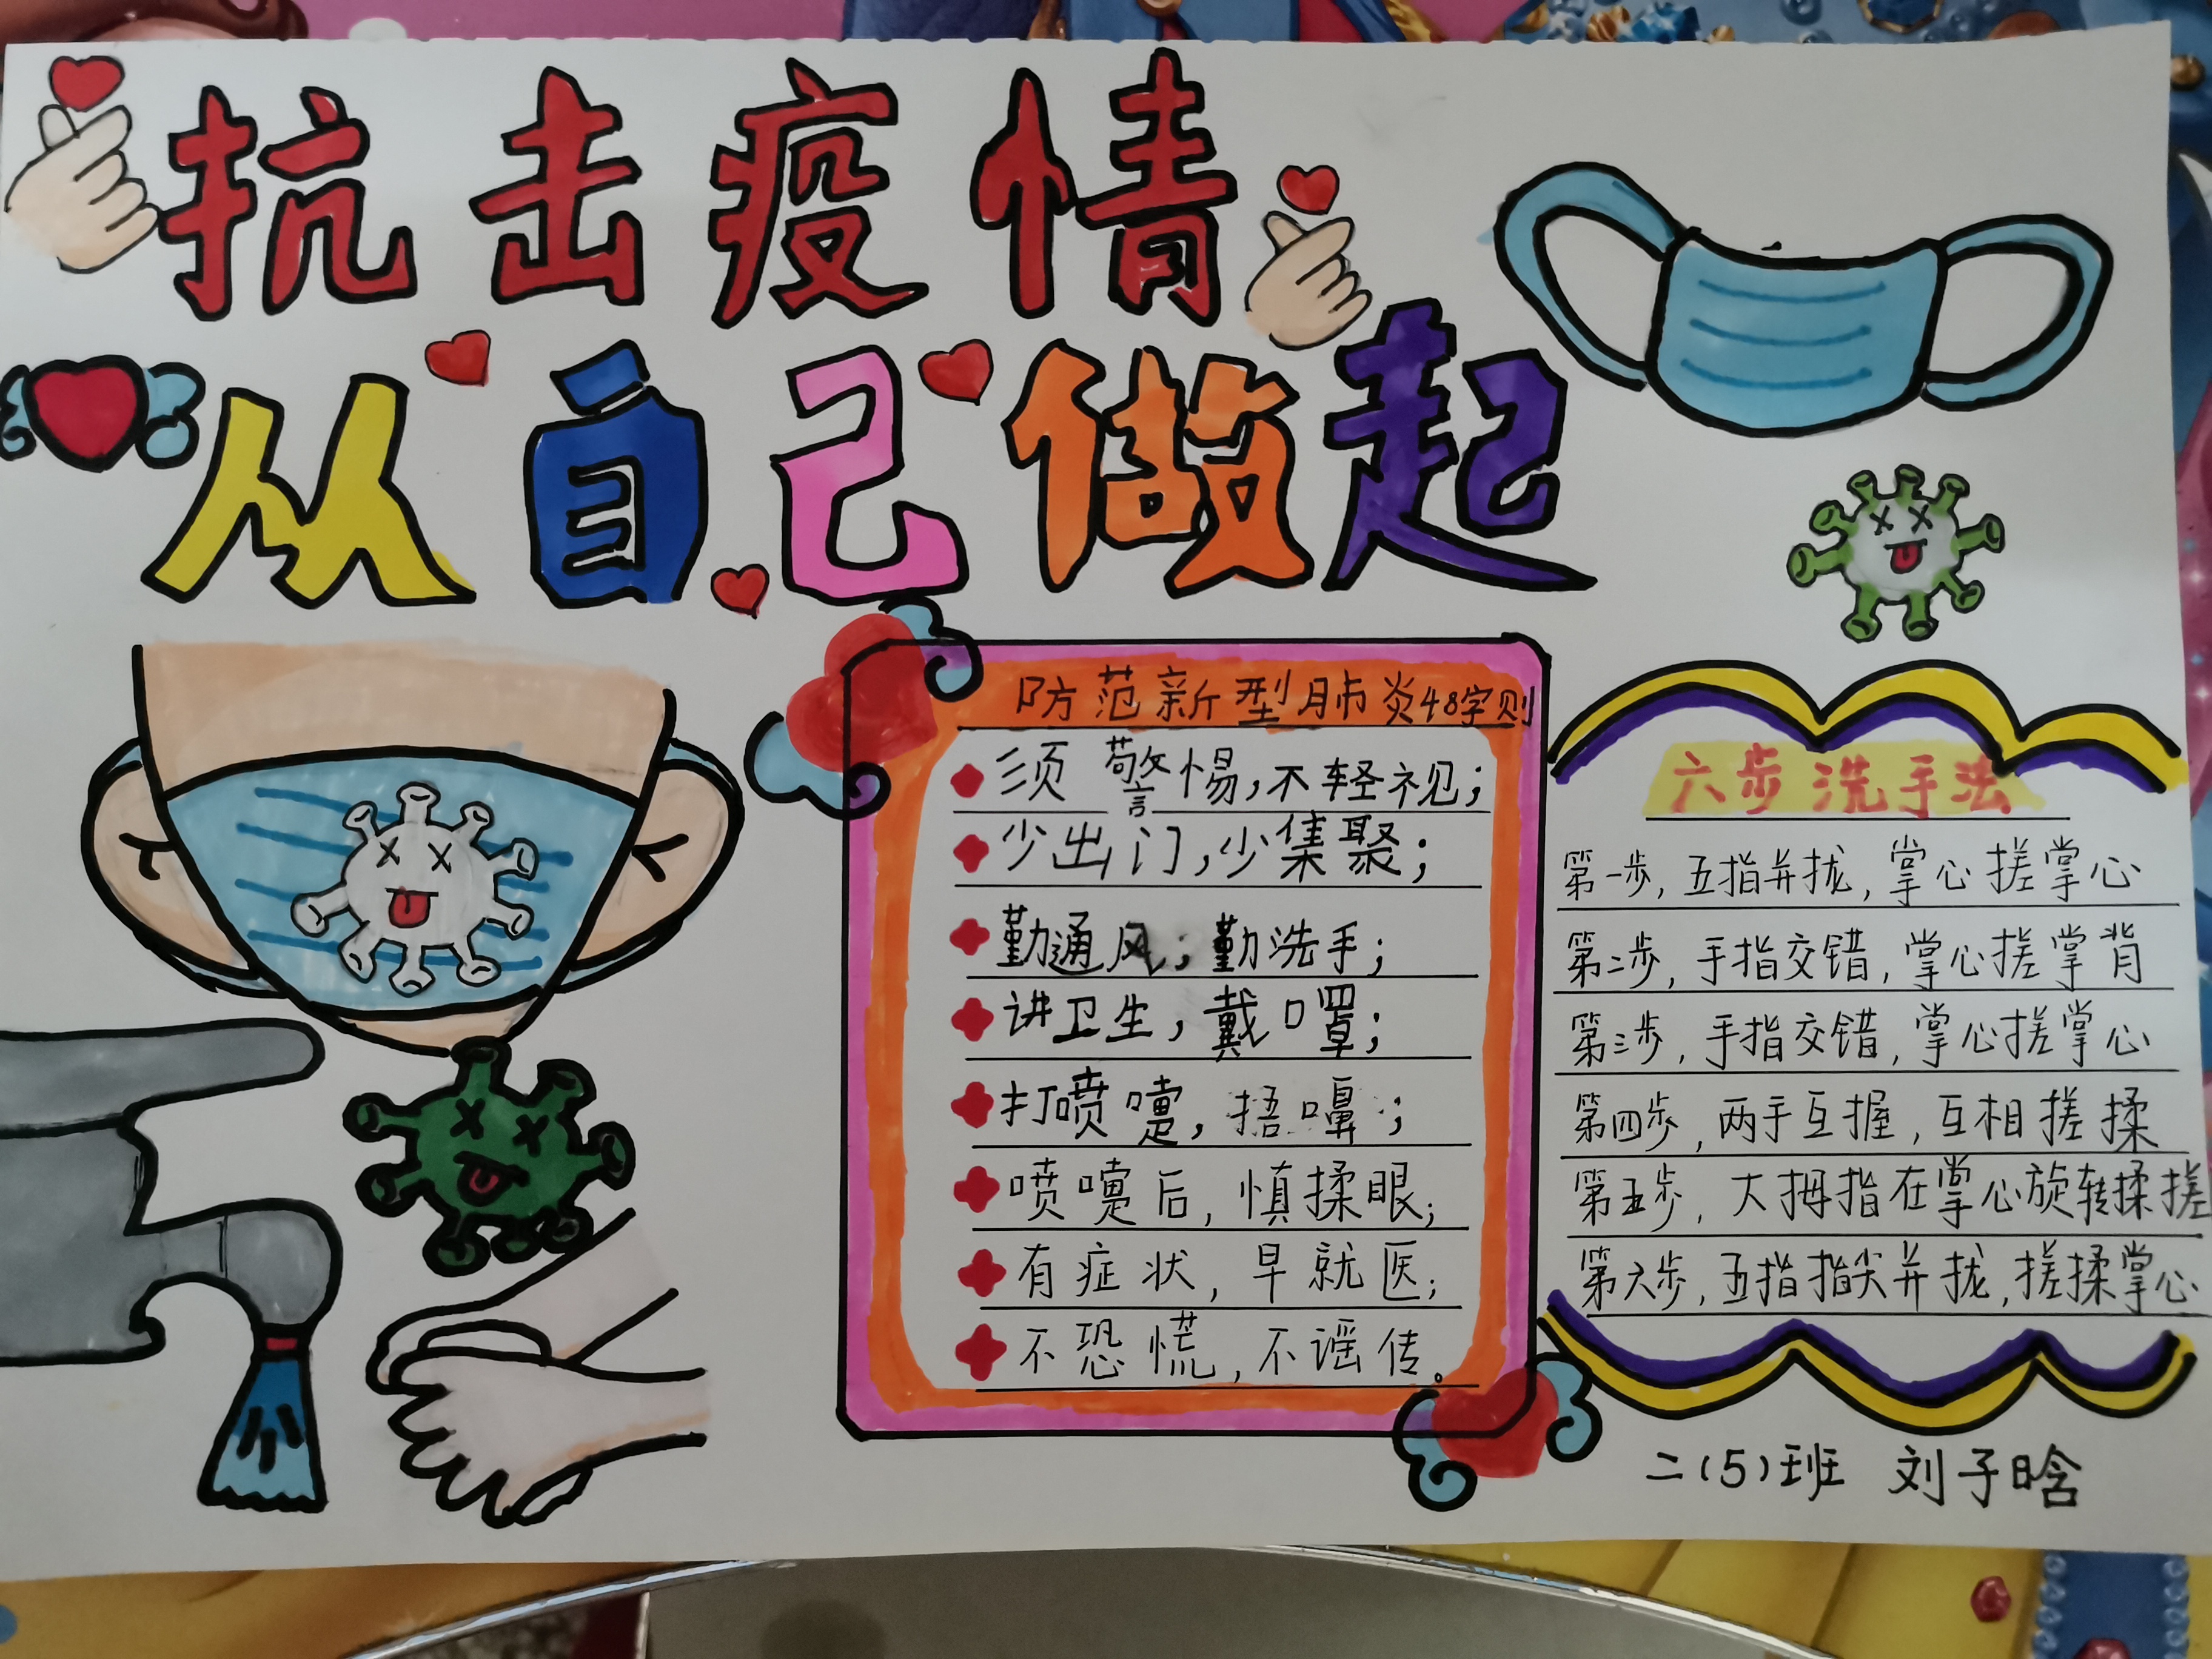 抗击疫情
从自己做起
防范新型肺炎48字则
须警惕,不轻视;
少出门,少集聚;
勤通风;勤洗手;
讲卫生,戴口罩;
打喷嚏,捂嚊;
喷嚏后,慎揉眼;
有症状,早就医;
不恐慌,不谣传。
六步洗手法
第一步,五指并拢,掌心搓掌心
第二步,手指交错,掌心搓掌背
第三步,手指交错,掌心搓掌心
第四步,两手互握,互相搓揉
第五步,大拇指在掌心旋转揉搓
第六步,五指指尖并拢,搓揉掌心
二(5)班 刘子晗